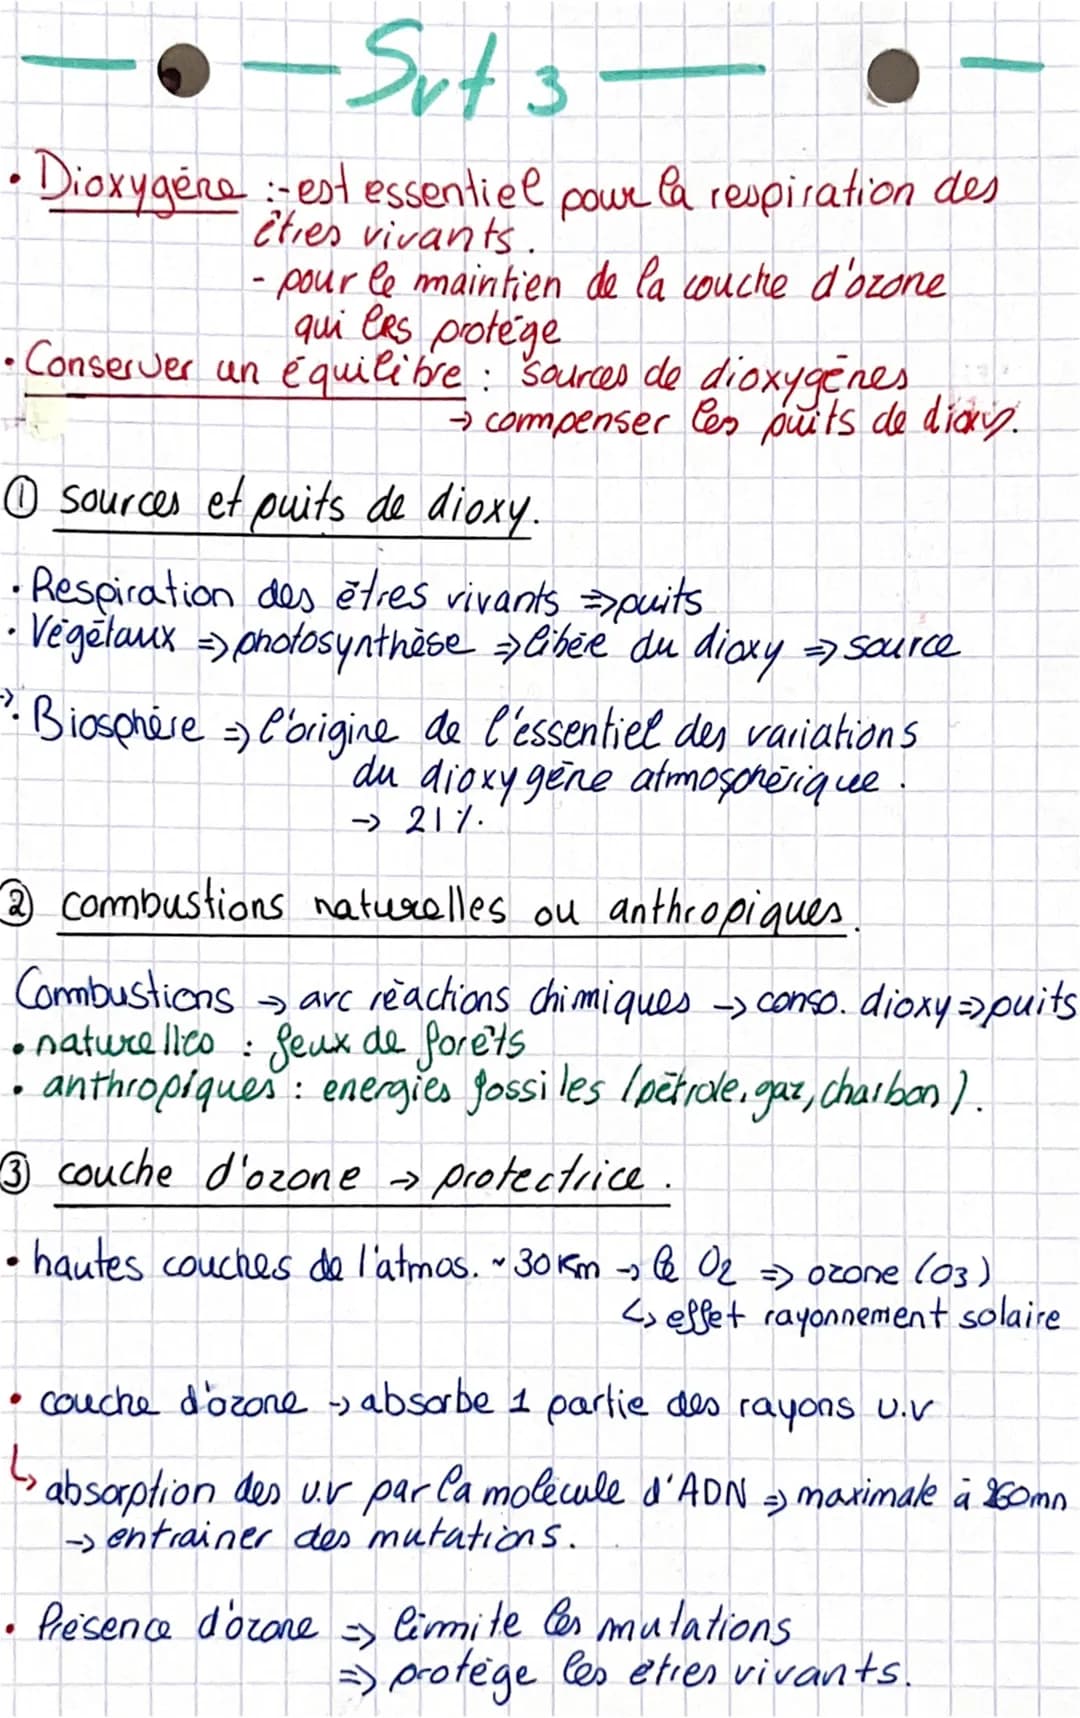 Svt 3
• Dioxygène :- est essentiel pour la respiration des
êtres vivants.
- pour le maintien de la couche d'ozone
qui les protège
• Conserver un équilibre : sources de dioxygènes
→ compenser les puits de dioxy.
① sources et puits de dioxy.
• Respiration des êtres vivants ⇒ puits
• Végétaux ⇒ photosynthèse ⇒ libére du dioxy ⇒ source
→ • Biosphère ⇒ l'origine de l'essentiel des variations
du dioxygène atmosphérique.
→ 21%.
② combustions naturelles ou anthropiques.
Combustions → avc réactions chimiques → conso. dioxy ⇒ puits
• naturelles : feux de forêts
• anthropiques : energies fossiles (pétrole, gaz, charbon).
③ couche d'ozone → protectrice.
• hautes couches de l'atmos. ~ 30 Km → le O2 ⇒ ozone (O3)
↳ effet rayonnement solaire
• couche d'ozone → absorbe 1 partie des rayons U.V
↳ absorption des U.V par la molécule d'ADN ⇒ maximale à 260mn
→ entrainer des mutations.
• Présence d'ozone ⇒ limite les mutations
⇒ protège les êtres vivants.